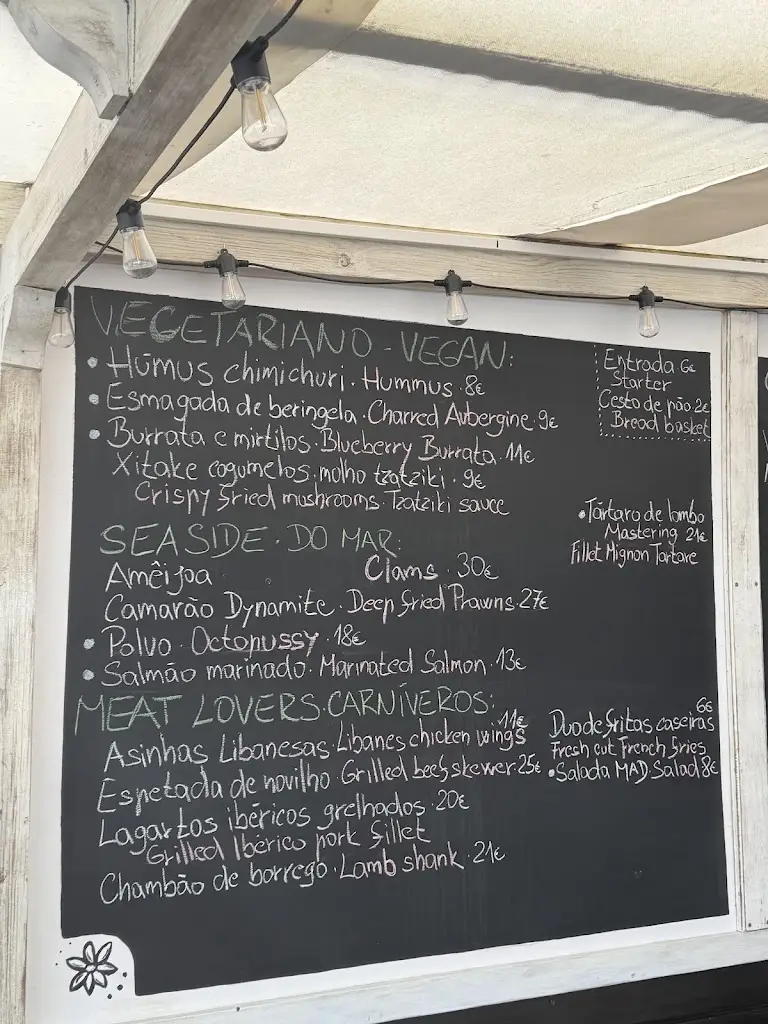 VEGETARIANO - VEGAN:
• Húmus chimichuri. Hummus. 8€
• Esmagada de beringela. Charred Aubergine. 9€
• Burrata e mirtilos. Blueberry Burrata. 11€
Xitake cogumelos, molho tzatziki. 9€
Crispy fried mushrooms. Tzatziki sauce
SEASIDE. DO MAR:
Amêijoa. Clams. 30€
Camarão Dynamite. Deep fried Prawns. 27€
• Polvo. Octopussy. 18€
• Salmão marinado. Marinated Salmon. 13€
MEAT LOVERS. CARNÍVEROS:
Asinhas Libanesas. Libanes chicken wings 11€
Espetada de novilho. Grilled beef skewer. 25€
Lagartos ibéricos grelhados. 20€
Grilled Ibérico pork fillet
Chambão de borrego. Lamb shank. 21€
Entrada 6€
Starter
Cesto de pão 2€
Bread basket
• Tártaro de lombo
Mastering 21€
Fillet Mignon Tartare
6€
Duo de fritas caseiras
Fresh cut French fries
• Salada MAD. Salad 8€